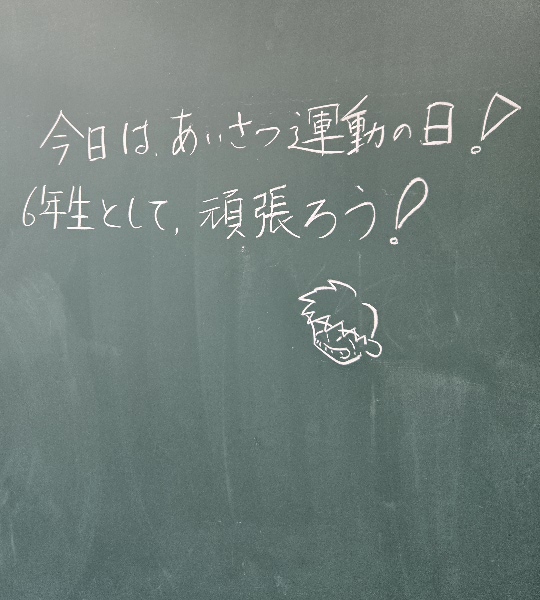 今日は、あいさつ運動の日!
6年生として、頑張ろう!